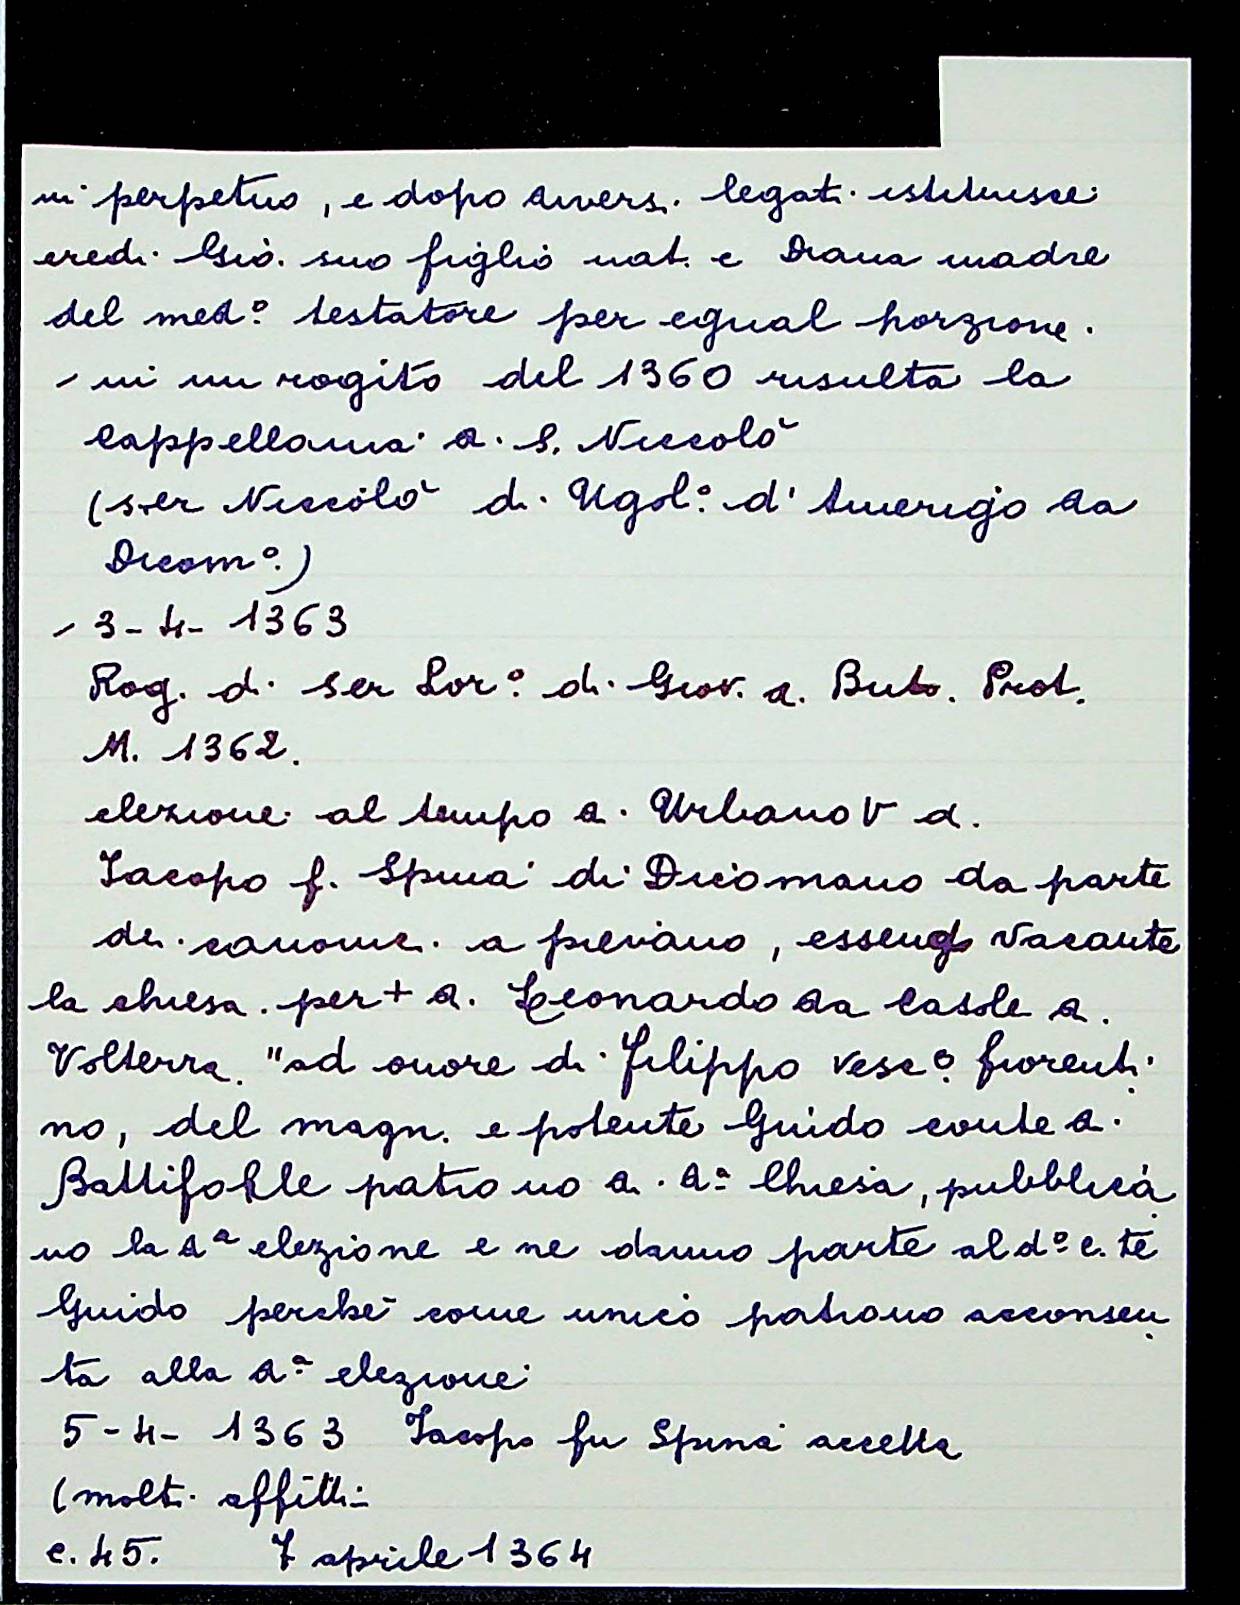 in perpetuo, e dopo divers. legati istituisce
eredi Gio. suo figlio nat. e Diana madre
del med.º testatore per egual porzione.
- in un rogito del 1360 risulta la
cappellania d. S. Niccolò
(ser Niccolò di Ugol.º d'Amerigo da
Dicom.º)
- 3-4-1363
Rog. di ser Lor.º di Giov. d. Buto. Prot.
M. 1362.
elezione al tempo d. Urbano V d.
Jacopo f. Spina di Dicomano da parte
dei canonici a pievano, essendo vacante
la chiesa per + d. Leonardo da Casole d.
Volterra. "ad onore di Filippo vesc.º fiorenti
no, del magn. e potente Guido conte d.
Battifolle patrono d. d.ª Chiesa, pubblica
no la d.ª elezione e ne danno parte al d.º c.te
Guido perché come unico patrono acconsen
ta alla d.ª elezione
5-4-1363 Jacopo fu Spina accetta
(molti affitti-
c. 45. 7 aprile 1364